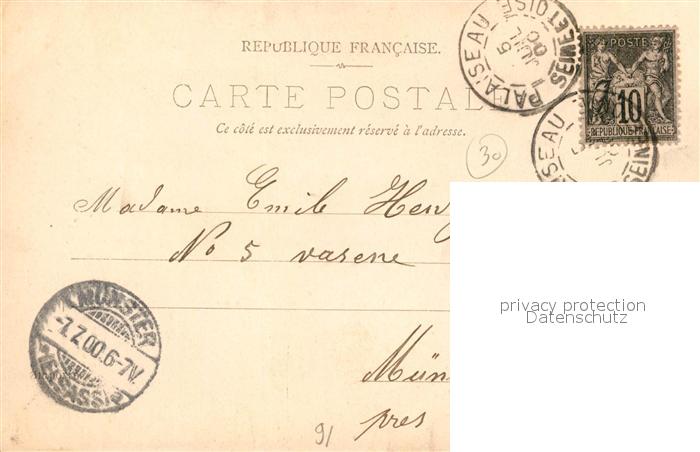 RÉPUBLIQUE FRANÇAISE.
CARTE POSTALE
Ce côté est exclusivement réservé à l'adresse.
PALAISEAU SEINE ET OISE
POSTE
10
REPUBLIQUE FRANÇAISE
30
Madame Emile
No 5 varene
MÜNSTER
7.7.00.6-7V.
(ELSASS)
Mün
pres
91
privacy protection
Datenschutz